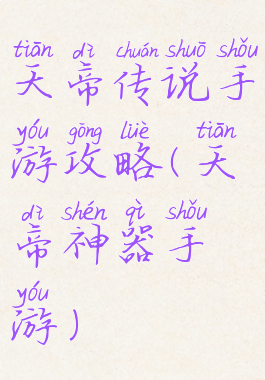 tiān dì chuán shuō shǒu
天帝传说手
yóu gōng lüè tiān
游攻略(天
dì shén qì shǒu
帝神器手
yóu
游)